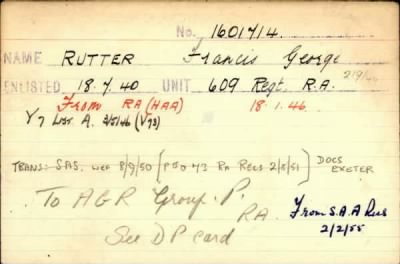 No. 1601714.
NAME RUTTER Francis George
ENLISTED 18.7.40 UNIT 609 Regt. R.A.
From RA (HAA) 18.1.46.
Y7 List A. (V73)
TRANS: SAS. WEF 8/9/50 (P50 73 RA RECS 2/8/51) DOCS EXETER
To AGR Group. P. RA.
From S.A.A Recs
2/2/55
See DP card